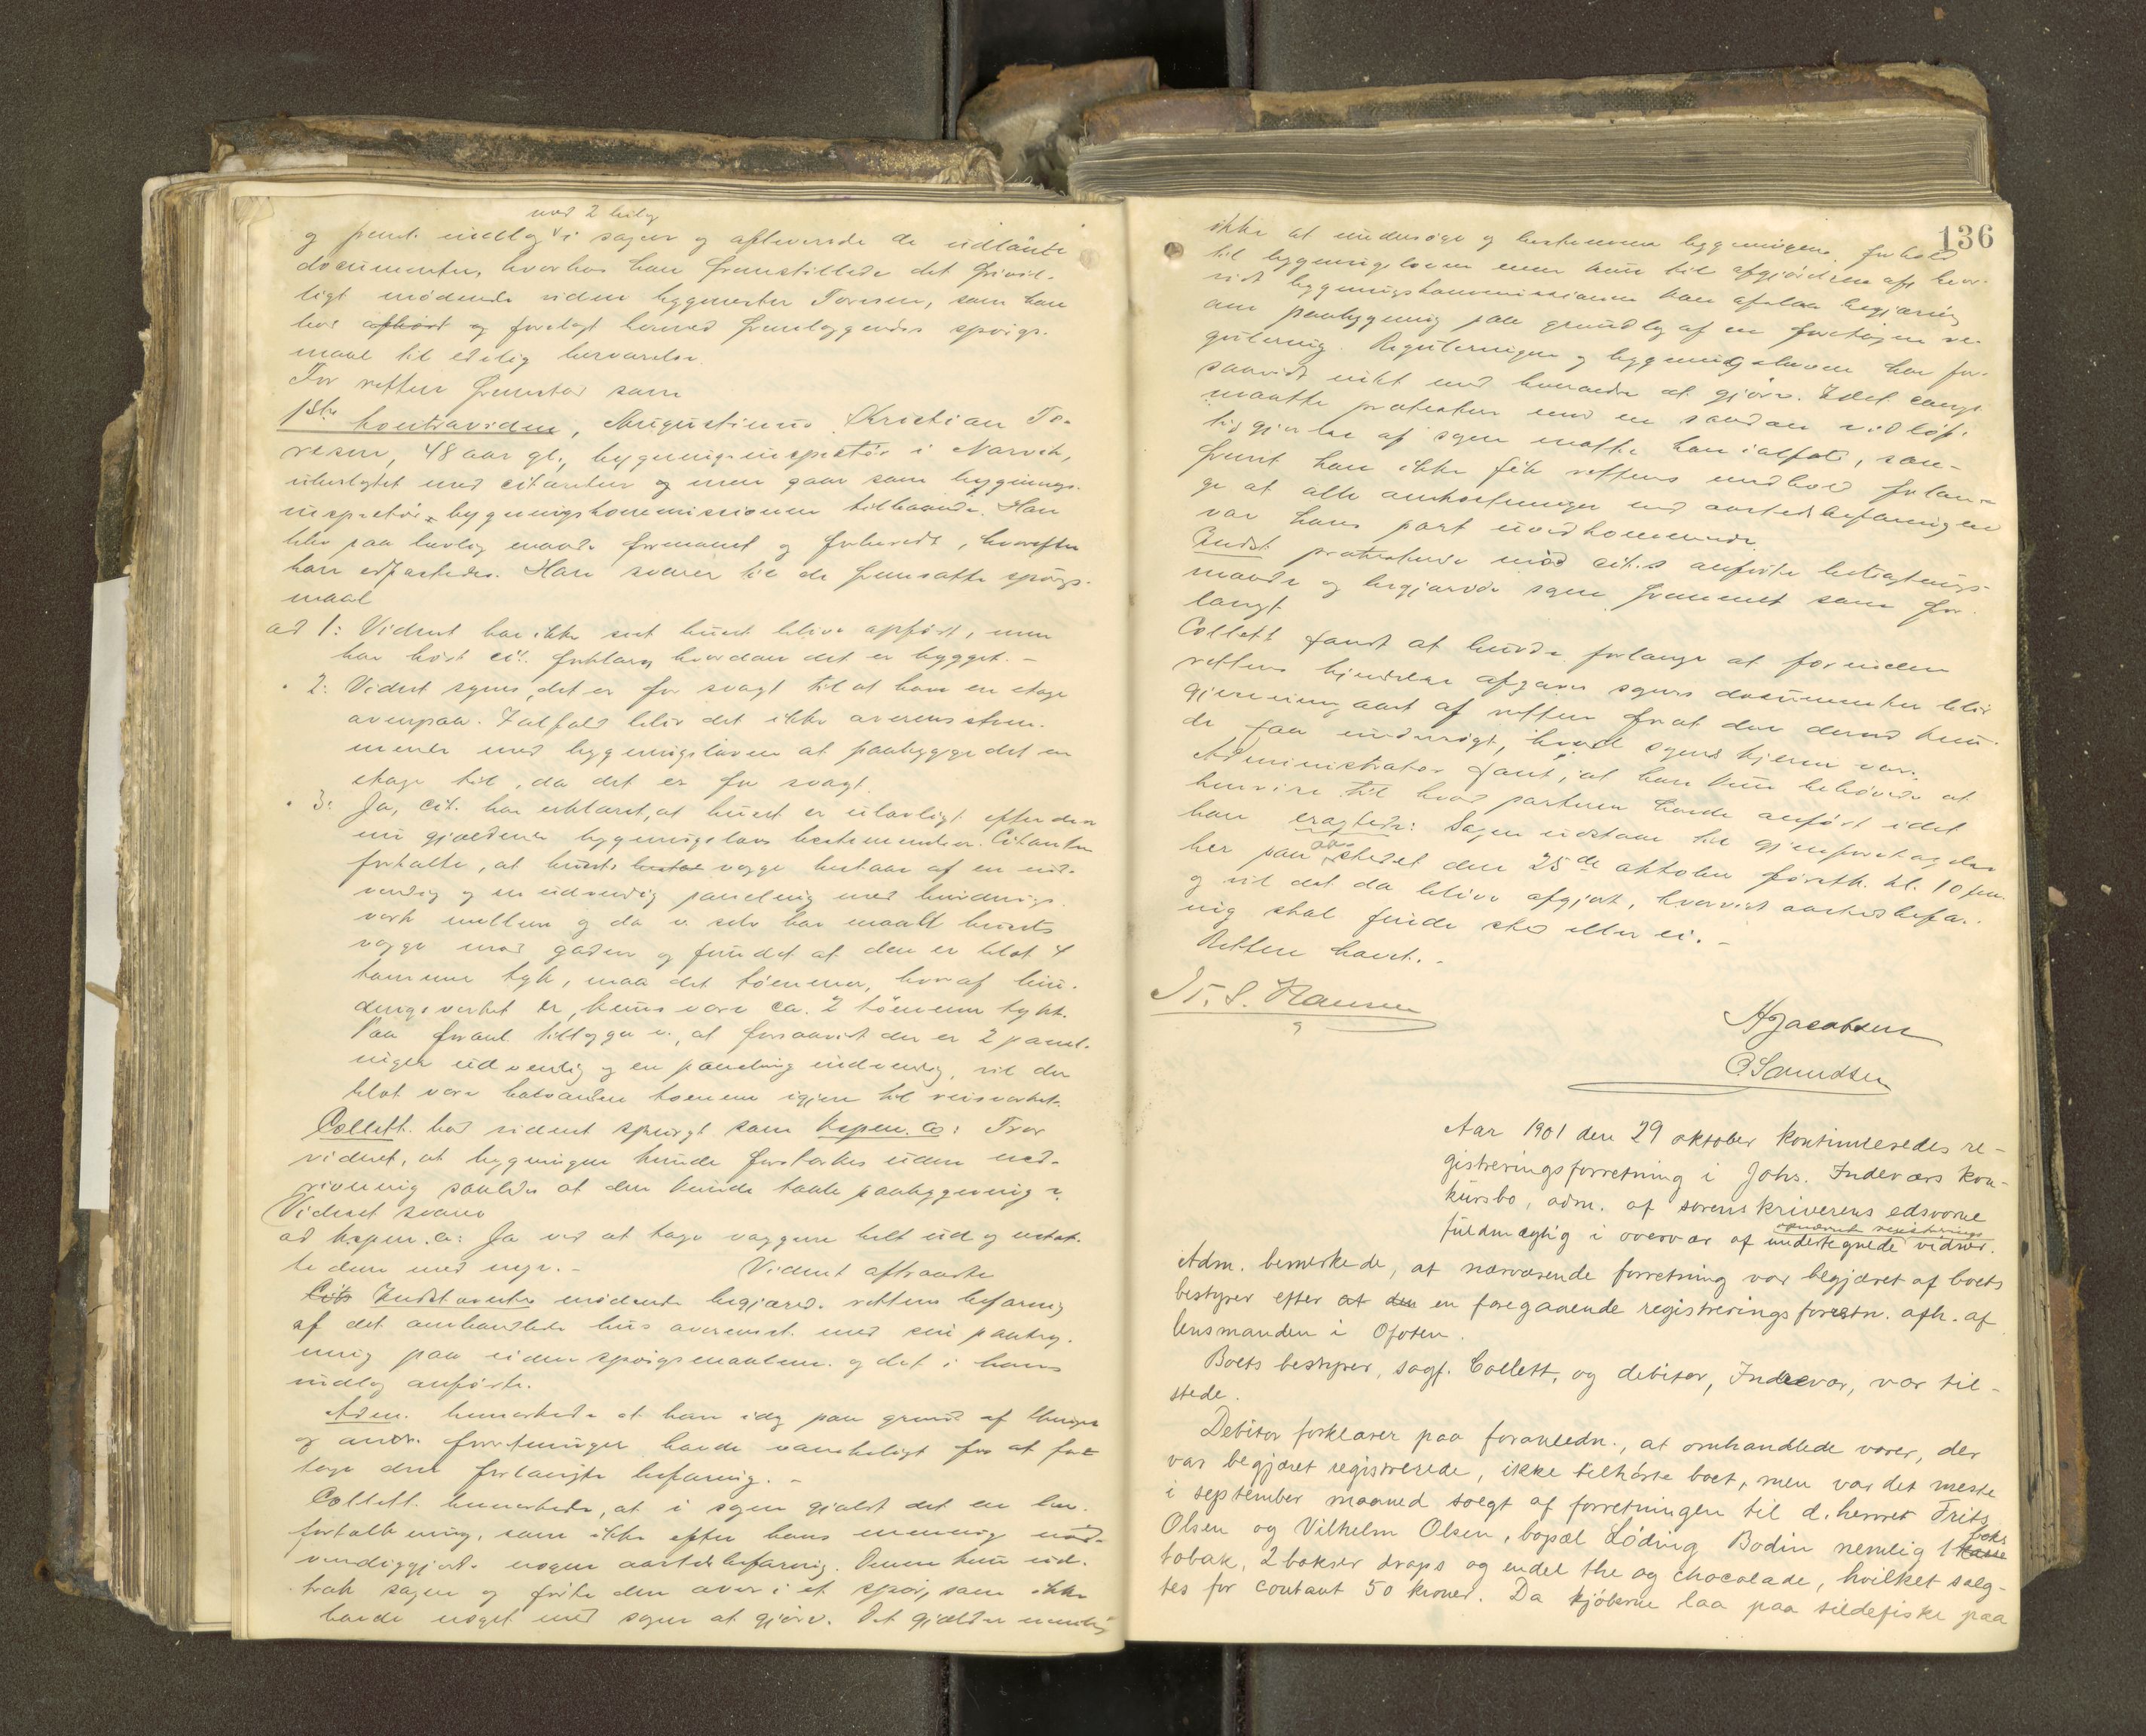 med 2 bilag
og perit. indlæg i sagen og afleverede de udlånte
documenter, hvorhos han fremstillede det frivil-
ligt mødende vidne bygmester Toresen, som han
bad afhørt og forelagt herved fremlæggendes spørgs-
maal til edelig besvarelse.
For retten fremstod som
1ste kontravidne, Augustinus Kristian To-
resen, 48 aar gl., bygningsinspektör i Narvik,
ubeslægtet med citanten og men gaar som bygnings-
inspektör bygningskommissionen tilhaande. Han
blev paa lovlig maade formanet og foberedt, hvorefter
han edfæstedes. Han svarer til de fremsatte spørgs-
maal
ad 1: Vidnet har ikke set huset blive opført, men
har hørt cit. forklare hvordan det er bygget. –
" 2: Vidnet synes, det er for svagt til at have en etage
ovenpaa. Ialfald blev det ikke overensstem-
mende med bygningsloven at paabygge det en
etage til, da det er for svagt
" 3: Ja, cit. har erklæret, at huset er ulovligt efter den
nu gjældende bygningslovs bestemmelser. Citanten
fortalte, at husets bestod vægge bestaar af en ind-
vendig og en udvendig paneling med bindings-
værk mellem og da v. selv har maalt husets
vægge mod gaden og fundet at den er blot 4
tommer tyk, maa det tömmer, hvoraf bin-
dingsverket er, kun være ca. 2 tommer tykt.
Paa foranl. tillægger v., at forsaavidt der er 2 panel-
inger udvendig og en paneling indvendig, vil der
blot være halvanden tomme igjen til reisverket.
Collett bad vidnet spurgt som Kspm. a: Tror
vidnet, at bygningen kunde forstærkes uden ned-
rivning saaledes at den kunde taale paabygning?
Vidnet svarer
ad kspm. a: Ja ved at tage væggene helt ud og erstat-
te dem med nye. – Vidnet aftraadte
Cits Indstævnte mødende begjæred. rettens befaring
af det omhandlede hus overenst. med sin paastand
paa vidnespørgsmaalene og det i hans
indlæg anførte.
Adm. bemærkede at han idag paa grund af things
og andr. forretninger havde vanskeligt for at fore-
tage den forlangte befaring. –
Collett bemærkede, at i sagen gjaldt det en
som ikke efter hans mening nød-
vendiggjorde nogen aastedsbefaring. Denne kun ud-
trak sagen og førte den over i et spor, som ikke
havde noget med sagen at gjøre. Det gjælder nemlig
136
ikke at undersøge og bestemme bygningens forhold
til bygningsloven men kun til afgjörelse af, hvor-
vidt bygningskommissionen kan afslaa begjæring
om paabygning paa grundlag af en foretagen re-
gulering. Reguleringen og bygningsloven har for-
saavidt intet med hverandre at gjøre. Idet comp.
maatte protestere mod en saadan vidløf-
tiggjørelse af sagen maatte han ialfald, saa-
fremt han ikke fik rettens medhold forlan-
ge at alle omkostninger med aastedsbefaringen
var hans part uvedkommende.
Indst. protesterede mod cit.s anførte betragtnings-
maade og begjærede sagen fremmet som for-
langt
Collett fandt at burde forlange at forinden
rettens kjendelse afgaves sagens documenter blev
gjennemgaaet af retten for at den derved kun-
de faa undersøgt, hvad sagens kjerne var.
Administrator fandt, at han kun behøvede at
henvise til hvad parterne havde anført idet
han eragtede: Sagen udstaar til gjenforetagelse
her paa stedet den 25de oktober førstk. kl. 10 fm.
og vil det da blive afgjort, hvorvidt aastedsbefa-
ring skal finde sted eller ei. –
Retten hævet. –
S. Hansen
A Jacobsen
Aar 1901 den 29 oktober kontinueredes re-
gistreringsforretning i Johs. Indeværs kon-
kursbo, adm. af sorenskriverens edsvorne
opnævnte registrerings
fuldmægtig i overvær af undertegnede vidner.
Adm. bemerkede, at nærværende forretning var begjæret af boets
bestyrer efter at den en foregaaende registreringsforretn. afh. af
lensmanden i Ofoten.
Boets bestyrer, sagf. Collett, og debitor, Indevær, var til-
stede.
Debitor forklarer paa foranledn., at omhandlede varer, der
var begjæret registrerede, ikke tilhørte boet, men var det meste
i september maaned solgt af forretningen til d.herrer Frits
Olsen og Vilhelm Olsen, bopæl Løding Bodin nemlig 1 kasse boks
tobak, 2 bokser drops og endel the og chocolade, hvilket solg-
tes for contant 50 kroner. Da kjøberne laa paa sildefiske paa